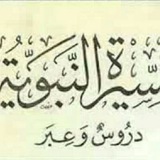 سيرة النبوية
دروس وعبر